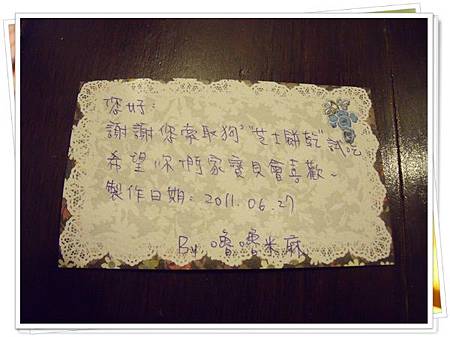 您好:
謝謝您索取狗狗"芝士餅乾"試吃
希望你們家寶貝會喜歡~
製作日期: 2011.06.27
By 嚕嚕米麻